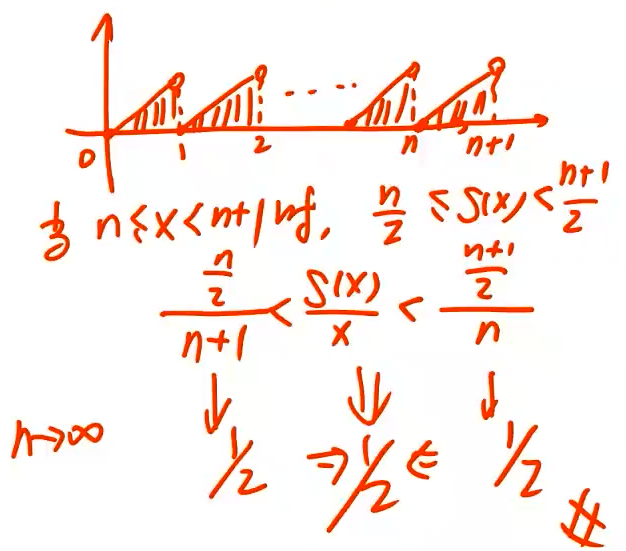 0 1 2 ...... n n+1
当 n≤x<n+1时, n/2 ≤ S(x) < (n+1)/2
(n/2)/(n+1) < S(x)/x < ((n+1)/2)/n
↓ ⇓ ↓
n→∞ 1/2 ⇒ 1/2 ⇐ 1/2 #